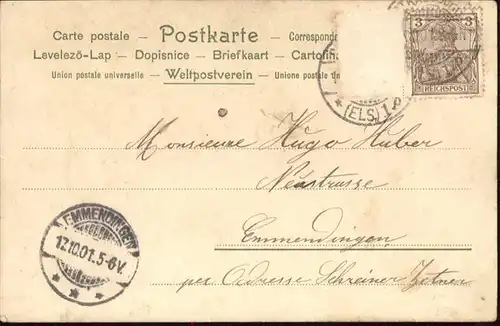 Carte postale - Postkarte - Corresponden
Levelező-Lap - Dopisnice - Briefkaart - Cartolina
Union postale universelle - Weltpostverein - Unione postale
3 3
REICHSPOST
(ELS.) 1 P
Monsieur Hugo Huber
Neustrasse
Emmendingen
per Adresse Schreiner
EMMENDINGEN
12.10.01.5-6V.